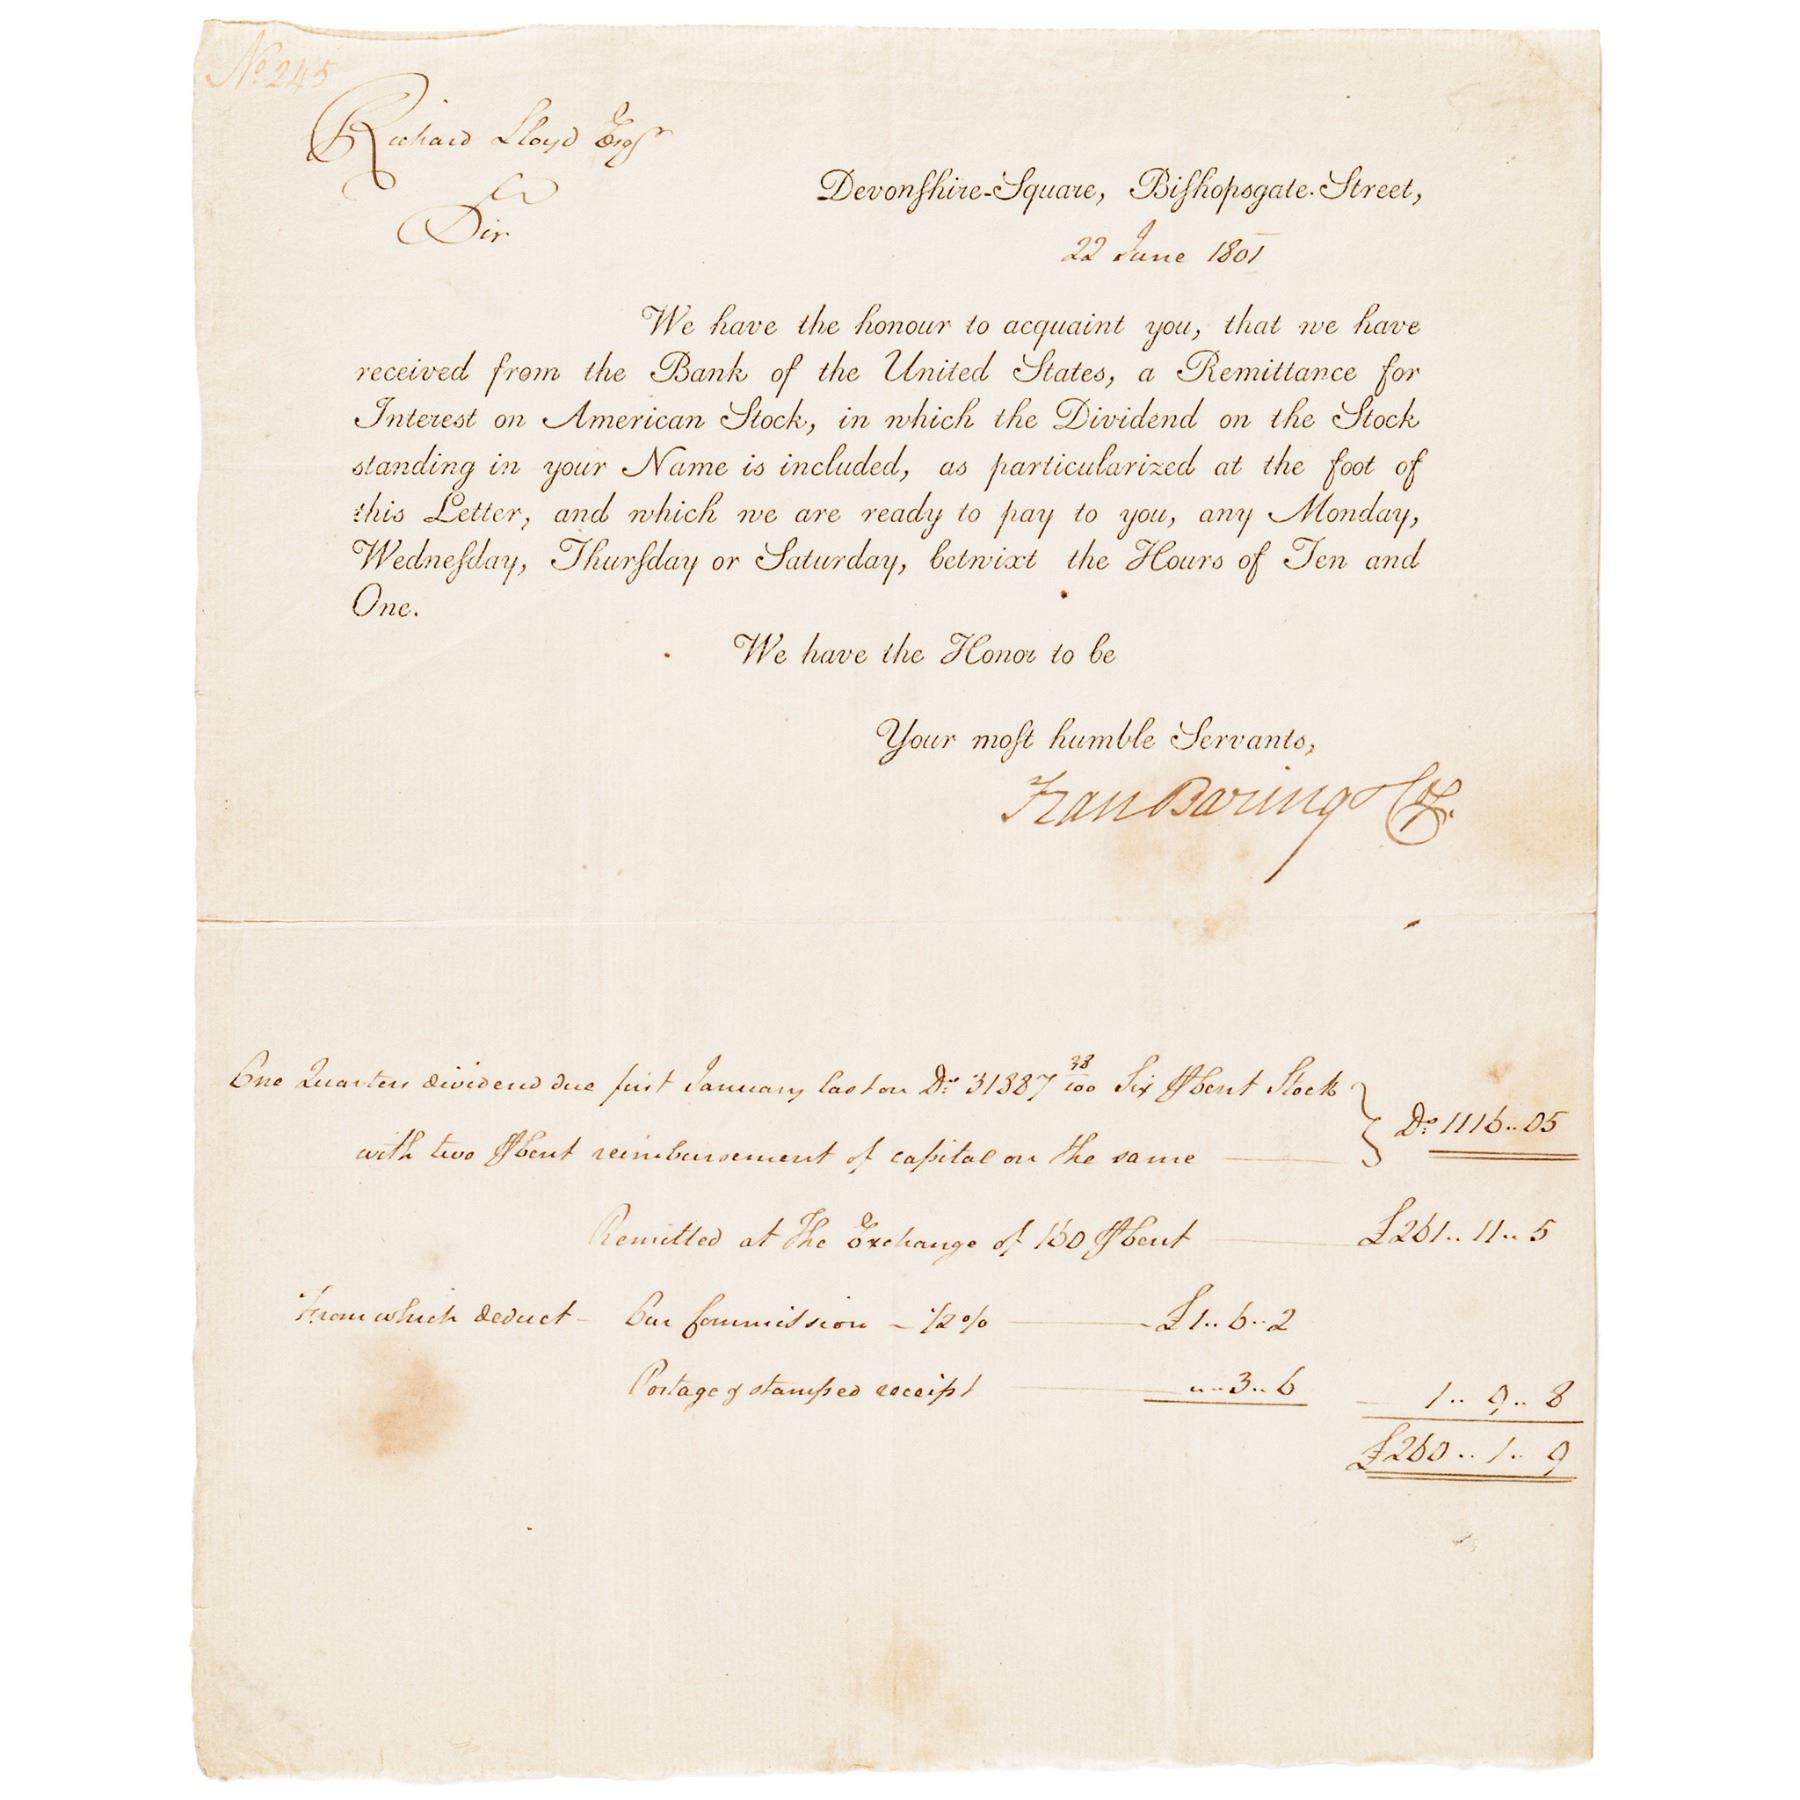 No 245
Richard Lloyd Esqr
Sir
Devonſhire-Square, Biſhopsgate-Street,
22 June 1801
We have the honour to acquaint you, that we have
received from the Bank of the United States, a Remittance for
Interest on American Stock, in which the Dividend on the Stock
standing in your Name is included, as particularized at the foot of
this Letter, and which we are ready to pay to you, any Monday,
Wedneſday, Thurſday or Saturday, betwixt the Hours of Ten and
One.
We have the Honor to be
Your moſt humble Servants,
Fran Baring & Co.
One Quarters dividend due first January last on Ds 31887 38/100 Six P Cent Stock
with two P Cent reimbursement of capital on the same } Ds 1116..05
Remitted at the Exchange of 160 P Cent £261..11..5
From which deduct - Our Commission - 1/2% £1..6..2
Postage & stamped receipt "..3..6 1..9..8
£260..1..9